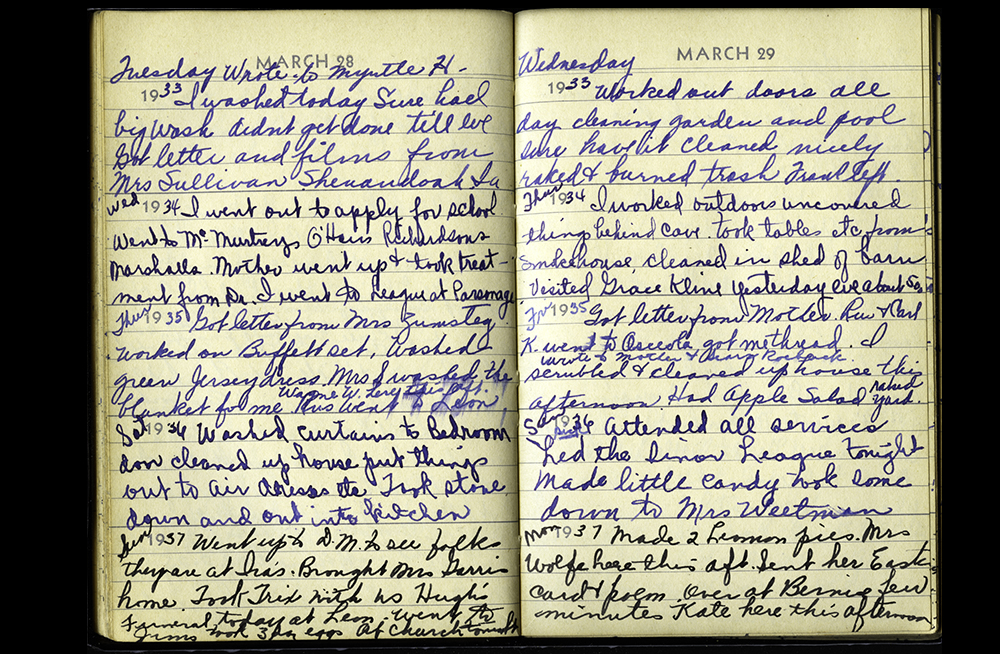 MARCH 28
Tuesday Wrote to Myrtle H-
1933 I washed today Sure had
big wash didnt get done till eve
Got letter and films from
Mrs Sullivan Shenandoah Ia
Wed 1934 I went out to apply for school
went to McMurtreys O'Hairs Richardsons
Marshalls. Mother went up & took treat-
ment from Dr. I went to League at Parsonage
Thur 1935 Got letter from Mrs Zumsteg.
Worked on Buffett set, Washed
green Jersey dress. Mrs I washed the
Wayne W. Lery this aft.
blanket for me. Rus went to Leon
Sat 1936 Washed curtains to Bedroom
door cleaned up house put things
out to air dresses etc Took stove
down and out into kitchen
Sun 1937 Went up to D.M. to see folks
they are at Ira's. Brought Mrs Garris
home. Took Trix with us Hugh's
Funeral today at Leon. Went to
Jims took 3 dz eggs At church tonight
MARCH 29
Wednesday
1933 Worked out doors all
day cleaning garden and pool
sure have it cleaned nicely
raked & burned trash Frank left.
Thur 1934 I worked outdoors uncovered
thing behind cave. took tables etc from
Smokehouse, cleaned in shed of barn
Visited Grace Kline yesterday eve about
Fri 1935 Got letter from Mother. Rus & Carl
K. went to Osceola got me thread. I
wrote to Mother &
scrubbed & cleaned up house this
afternoon. Had Apple Salad raked yard
Sun 1936 Attended all services
Led the Sinor League tonight
Made little candy took some
down to Mrs Weetman
Mon 1937 Made 2 Lemon pies. Mrs
Wolfe here this aft. Sent her Easter
card & poem. Over at Bernie few
minutes Kate here this afternoon